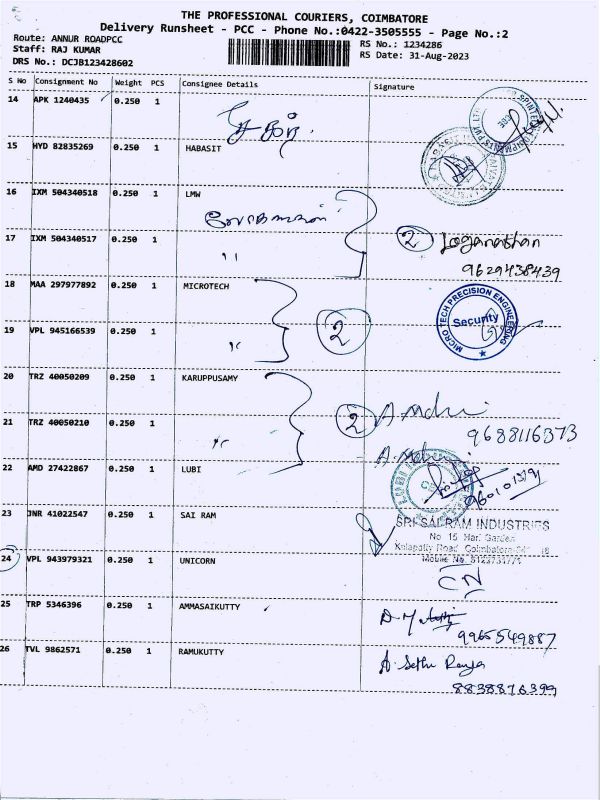 THE PROFESSIONAL COURIERS, COIMBATORE
Delivery Runsheet - PCC - Phone No.:0422-3505555 - Page No.:2
Route: ANNUR ROADPCC RS No.: 1234286
Staff: RAJ KUMAR RS Date: 31-Aug-2023
DRS No.: DCJB123428602
S No Consignment No Weight PCS Consignee Details Signature
14 APK 1240435 0.250 1
15 HYD 82835269 0.250 1 HABASIT
16 IXM 504340518 0.250 1 LMW
17 IXM 504340517 0.250 1 " 2 Loganathan
9629438439
18 MAA 297977892 0.250 1 MICROTECH
MICRO TECH PRECISION ENGINEERING
Security
19 VPL 945166539 0.250 1 " 2
20 TRZ 40050209 0.250 1 KARUPPUSAMY
21 TRZ 40050210 0.250 1 " 2
9688116373
22 AMD 27422867 0.250 1 LUBI
23 JNR 41022547 0.250 1 SAI RAM
SRI SAI RAM INDUSTRIES
No 15 Hari Garden
Kalapatty Road Coimbatore
Mobile No
24 VPL 943979321 0.250 1 UNICORN
25 TRP 5346396 0.250 1 AMMASAIKUTTY
9965549887
26 TVL 9862571 0.250 1 RAMUKUTTY A. Sethu Ranja
8838876399